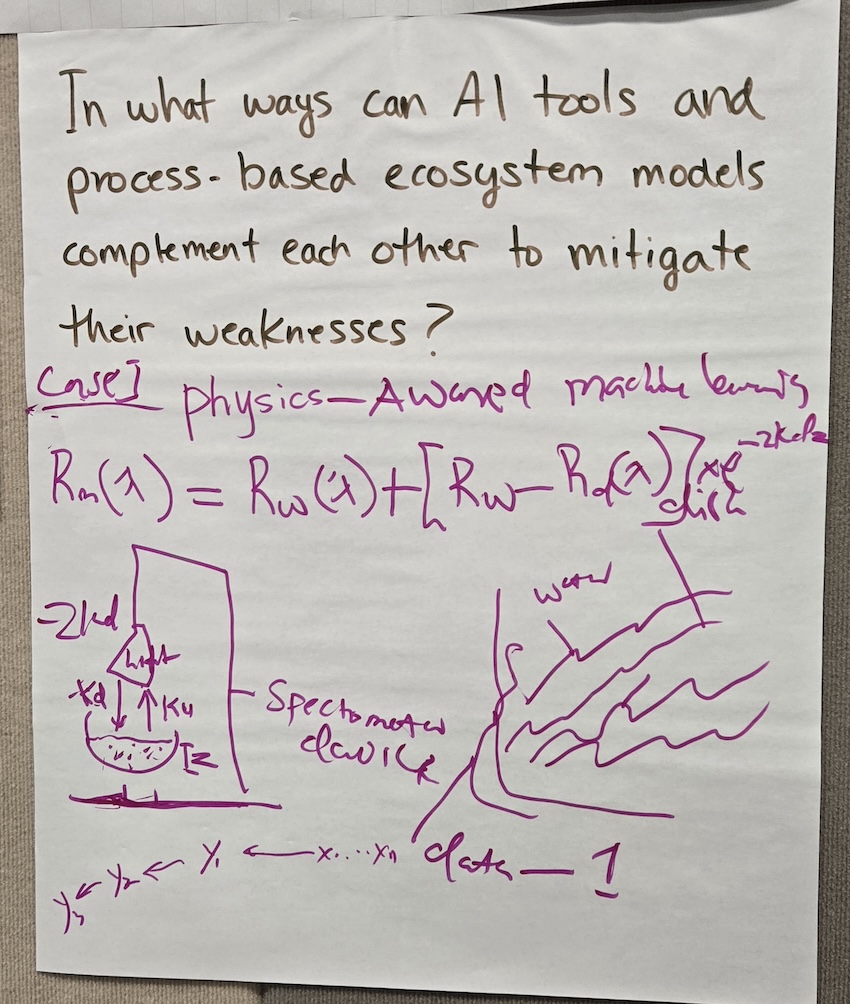 In what ways can AI tools and
process-based ecosystem models
complement each other to mitigate
their weaknesses?
Case 1 physics-Awared machine learning
Rm(λ) = Rw(λ) + [Rw - Rd(λ)] x e^-2kdz
dish
-2kd
light
-Kd
Ku
z
Spectometer
device
water
data - 1
x....xn
y1
y2
y3